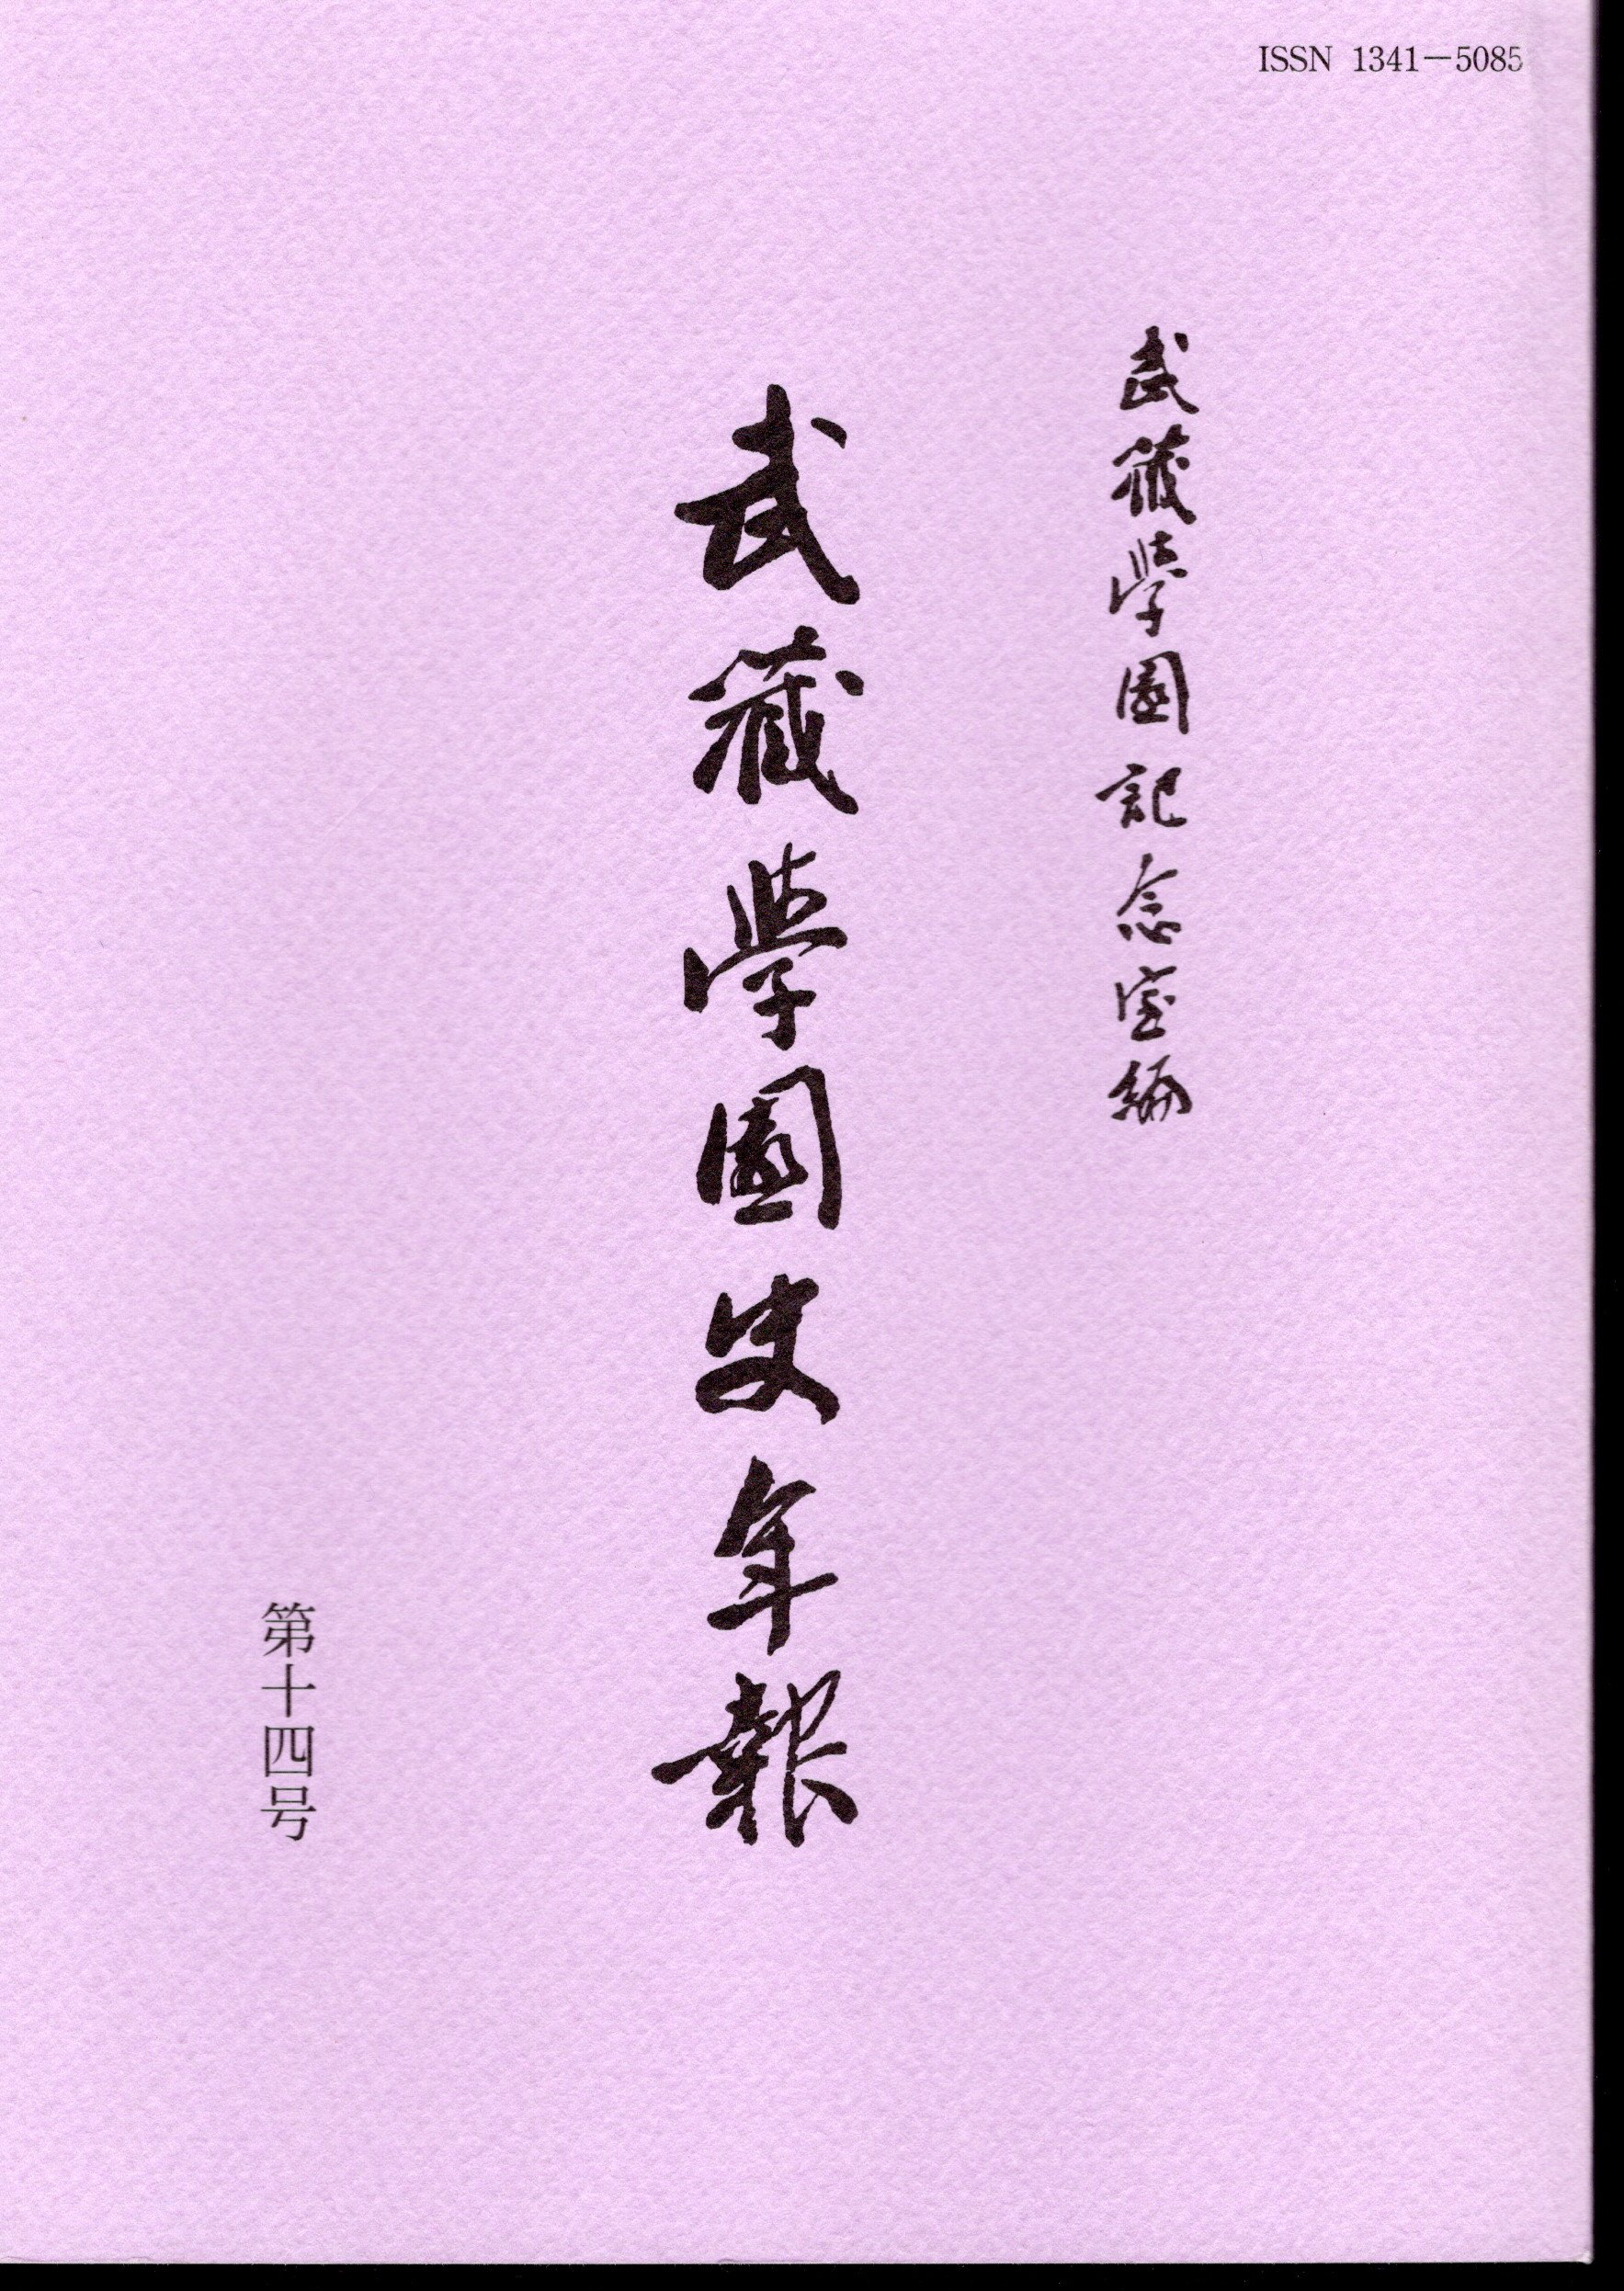 ISSN 1341-5085
武蔵學園記念室編
武蔵學園史年報
第十四号